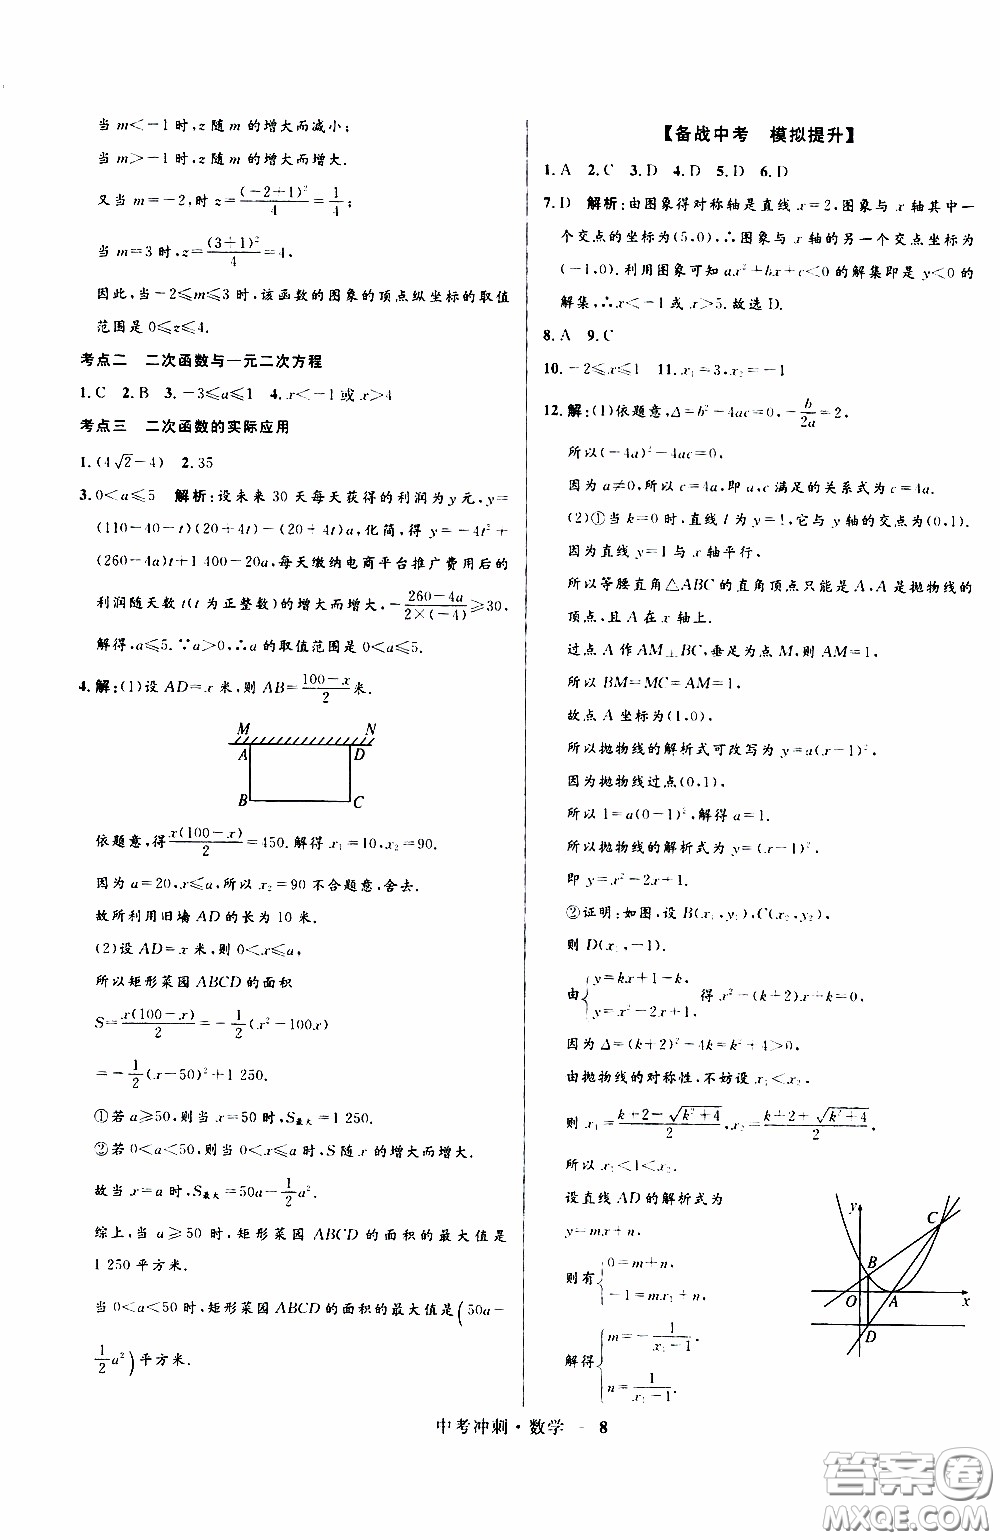 当 m<-1 时,z 随 m 的增大而减小;
当 m>-1 时,z 随 m 的增大而增大.
又当 m=-2,时 z=(-2+1)²/4=1/4,
当 m=3 时,z=(3+1)²/4=4,
因此,当-2≤m≤3 时,该函数的图象的顶点纵坐标的取值
范围是 0≤z≤4.
考点二 二次函数与一元二次方程
1.C 2.B 3.-3≤a≤1 4.x<-1或x>4
考点三 二次函数的实际应用
1.(4√2-4) 2.35
3.0<a≤5 解析:设未来 30 天每天获得的利润为 y 元, y=
(110-40-t)(20+4t)-(20+4t)a,化简,得 y=-4t²+
(260-4a)t+1 400-20a,每天缴纳电商平台推广费用后的
利润随天数 t(t 为正整数)的增大而增大,-(260-4a)/(2×(-4))≥30,
解得,a≤5.∵a>0,∴a 的取值范围是 0<a≤5.
4.解:(1)设 AD=x 米,则 AB=(100-x)/2米.
M N
A D
B C
依题意,得x(100-x)/2=450.解得 x₁=10,x₂=90.
因为 a=20,x≤a,所以 x₂=90 不合题意,舍去.
故所利用旧墙 AD 的长为 10 米.
(2)设 AD=x 米,则 0<x≤a,
所以矩形菜园 ABCD 的面积
S=x(100-x)/2=-1/2(x²-100x)
=-1/2(x-50)²+1 250.
①若 a≥50,则当 x=50 时,S最大=1 250.
②若 0<a<50,则当 0<x≤a 时,S 随 x 的增大而增大.
故当 x=a 时,S最大=50a-1/2a².
综上,当 a≥50 时,矩形菜园 ABCD 的面积的最大值是
1 250平方米.
当 0<a<50 时,矩形菜园 ABCD 的面积的最大值是(50a-
1/2a²)平方米.
【备战中考 模拟提升】
1.A 2.C 3.D 4.D 5.D 6.D
7.D 解析:由图象得对称轴是直线 x=2,图象与 x 轴其中一
个交点的坐标为(5,0),∴图象与 x 轴的另一个交点坐标为
(-1,0).利用图象可知 ax²+bx+c<0 的解集即是 y<0 的
解集,∴x<-1 或 x>5.故选 D.
8.A 9.C
10.-2≤x≤1 11.x₁=3,x₂=-1
12.解:(1)依题意,Δ=b²-4ac=0,-b/2a=2,
所以(-4a)²-4ac=0,
因为 a≠0,所以 c=4a,即 a,c 满足的关系式为 c=4a.
(2)①当 k=0 时,直线 l 为 y=1,它与 y 轴的交点为(0,1).
因为直线 y=1 与 x 轴平行,
所以等腰直角△ABC 的直角顶点只能是 A,A 是抛物线的
顶点,且 A 在 x 轴上.
过点 A 作 AM⊥BC,垂足为点 M,则 AM=1,
所以 BM=MC=AM=1,
故点 A 坐标为(1,0),
所以抛物线的解析式可改写为 y=a(x-1)²,
因为抛物线过点(0,1),
所以 1=a(0-1)²,解得 a=1.
所以抛物线的解析式为 y=(x-1)²,
即 y=x²-2x+1.
②证明:如图,设 B(x₁,y₁),C(x₂,y₂),
则 D(x₁,-1).
由{y=kx+1-k, y=x²-2x+1, 得 x²-(k+2)x+k=0,
因为 Δ=(k+2)²-4k=k²+4>0,
由抛物线的对称性,不妨设 x₁<x₂,
则 x₁=(k+2-√(k²+4))/2,x₂=(k+2+√(k²+4))/2,
所以 x₁<1<x₂,
设直线 AD 的解析式为
y=mx+n,
则有{0=m+n, -1=mx₁+n,
解得{m=-1/(x₁-1), n=1/(x₁-1).
y
C
B
O A x
D
中考冲刺·数学 - 8
答案圈
MXQE.COM